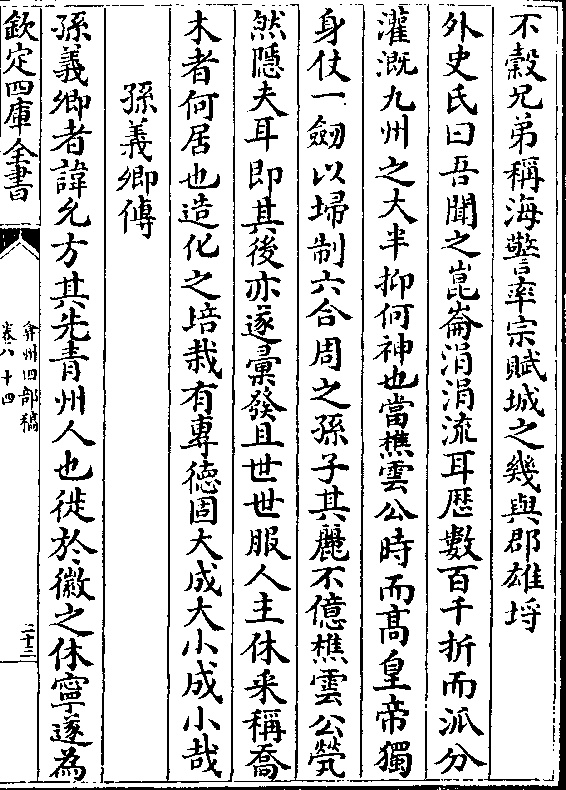 不穀兄弟稱海警率宗賦城之幾與郡雄埒
外史氏曰吾聞之崑崙涓涓流耳歴數百千折而泒分
灌溉九州之大半抑何神也當樵雲公時而髙皇帝獨
身仗一劒以埽制六合周之孫子其麗不億樵雲公煢
然隱夫耳即其後亦遂彚發且世世服人主休采稱喬
木者何居也造化之培栽有專徳固大成大小成小哉
孫義卿傳
孫義卿者諱允方其先青州人也徙於徽之休寧遂為
欽定四庫全書
弇州四部稿
卷八十四
二十三